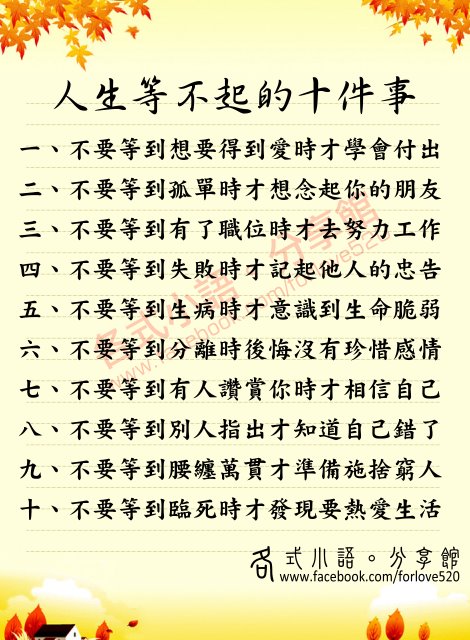 人生等不起的十件事
一、不要等到想要得到愛時才學會付出
二、不要等到孤單時才想念起你的朋友
三、不要等到有了職位時才去努力工作
四、不要等到失敗時才記起他人的忠告
五、不要等到生病時才意識到生命脆弱
六、不要等到分離時後悔沒有珍惜感情
七、不要等到有人讚賞你時才相信自己
八、不要等到別人指出才知道自己錯了
九、不要等到腰纏萬貫才準備施捨窮人
十、不要等到臨死時才發現要熱愛生活
各式小語。分享館
www.facebook.com/forlove520
各式小語。分享館
www.facebook.com/forlove520